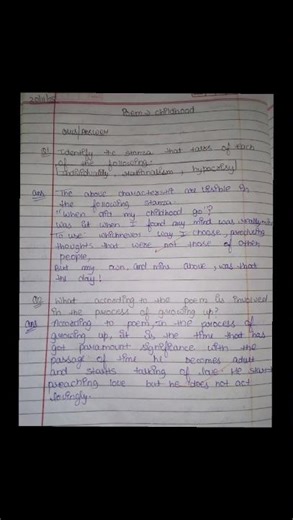 Poem → childhood
Que/Answer
Q1 Identify the stanza that talks of each
of the following.
individuality, rationalism, hypocrisy
Ans The above characteristics are visible in
the following stanza
"When did my childhood go"?
Was it when I found my mind was really mine
To use whichever way I choose, producing
thoughts that were not those of other
people,
But my own, and mine alone, was that
the day!
Q2 What according to the poem is involved
in the process of growing up?
Ans According to poem, in the process of
growing up, it is the time that has
got paramount significance with the
passage of time he becomes adult
and starts talking of love. He
preaching love but he does not act
lovingly.